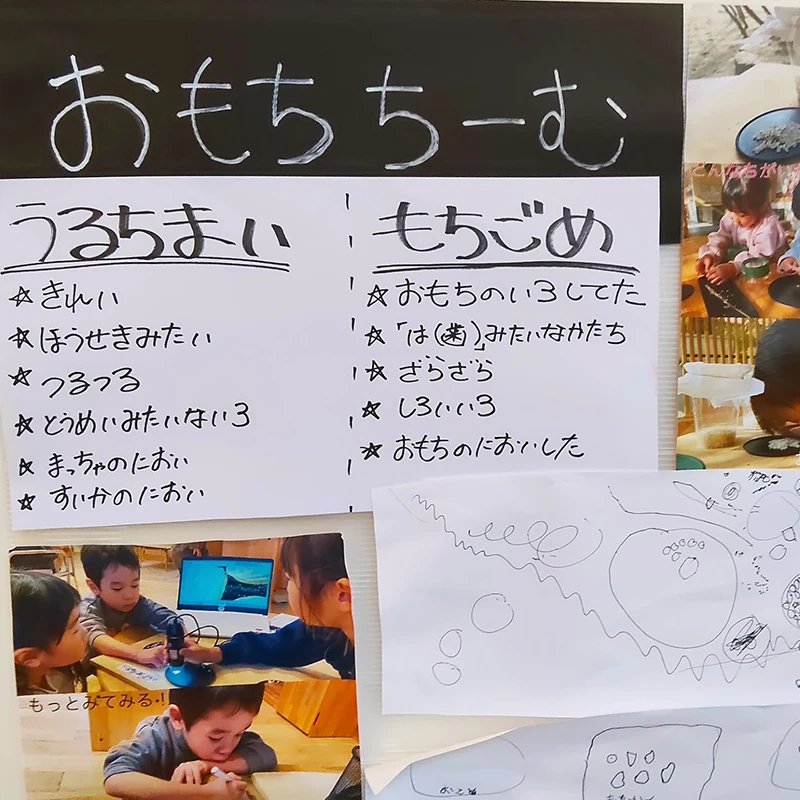 おもちちーむ
うるちまい
☆きれい
☆ほうせきみたい
☆つるつる
☆とうめいみたいないろ
☆まっちゃのにおい
☆すいかのにおい
もちごめ
☆おもちのいろしてた
☆「は(歯)」みたいなかたち
☆ざらざら
☆しろいいろ
☆おもちのにおいした
どんなちがい
もっとみてみる・!
おこめ